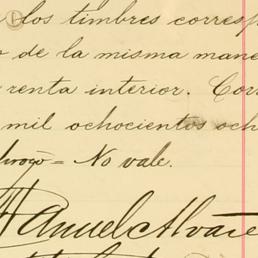 los timbres corresp
de la misma mane
renta interior. Cor
mil ochocientos och
No vale.
Manuel Alvare